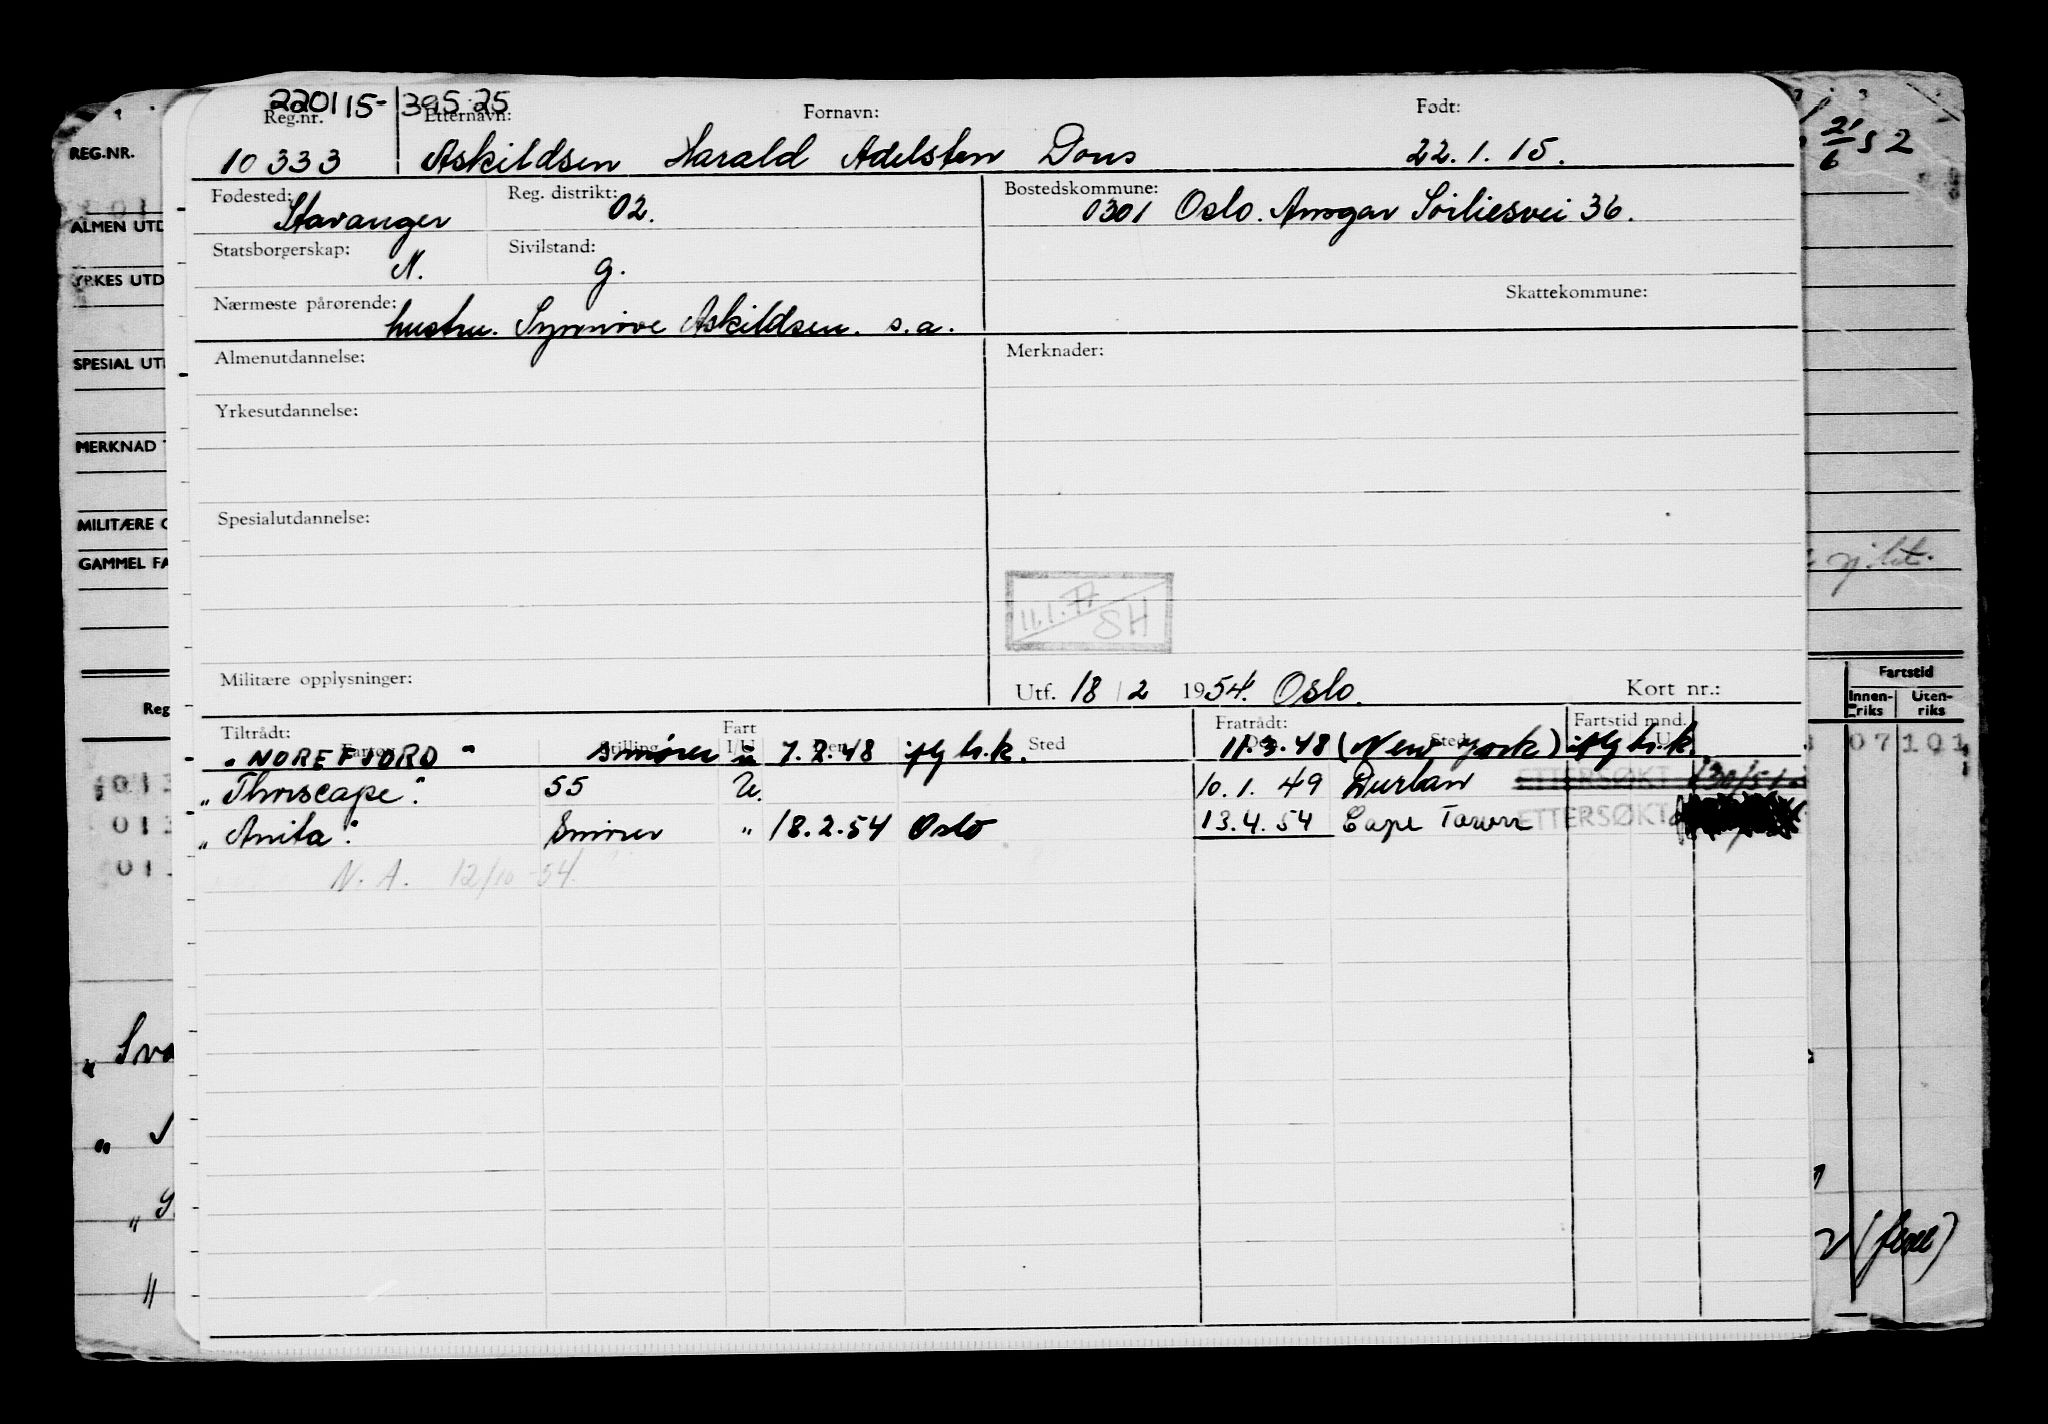 220115-39525
Reg.nr. Etternavn: Fornavn: Født:
10333 Askildsen Harald Adelsten Dons 22.1.15.
Fødested: Stavanger Reg. distrikt: 02. Bostedskommune: 0301 Oslo. Ansgar Sörliesvei 36.
Statsborgerskap: N. Sivilstand: g.
Nærmeste pårørende: hustru. Synnöve Askildsen. s.a. Skattekommune:
Almenutdannelse: Merknader:
Yrkesutdannelse:
Spesialutdannelse:
11.1.77 SH
Militære opplysninger: Utf. 18/2 1954. Oslo. Kort nr.:
Tiltrådt: Fart Fratrådt: Fartstid mnd.
Fartøy Stilling I/U Den Sted Den Sted I U
"NOREFJORD" smörer u 7.2.48 iflg h.k. 11.3.48 (New York) iflg h.k.
"Thorscape". 55 U. 10.1.49 Durban ETTERSØKT
"Anita". Smörer " 18.2.54 Oslo 13.4.54 Cape Town ETTERSØKT
N.A. 12/10-54.
REG.NR.
ALMEN UTD
YRKES UTD
SPESIAL UT
MERKNAD
MILITÆRE
GAMMEL FA
Reg
013
013
013
21/6 52
Fartstid
Innenriks Utenriks
07 101